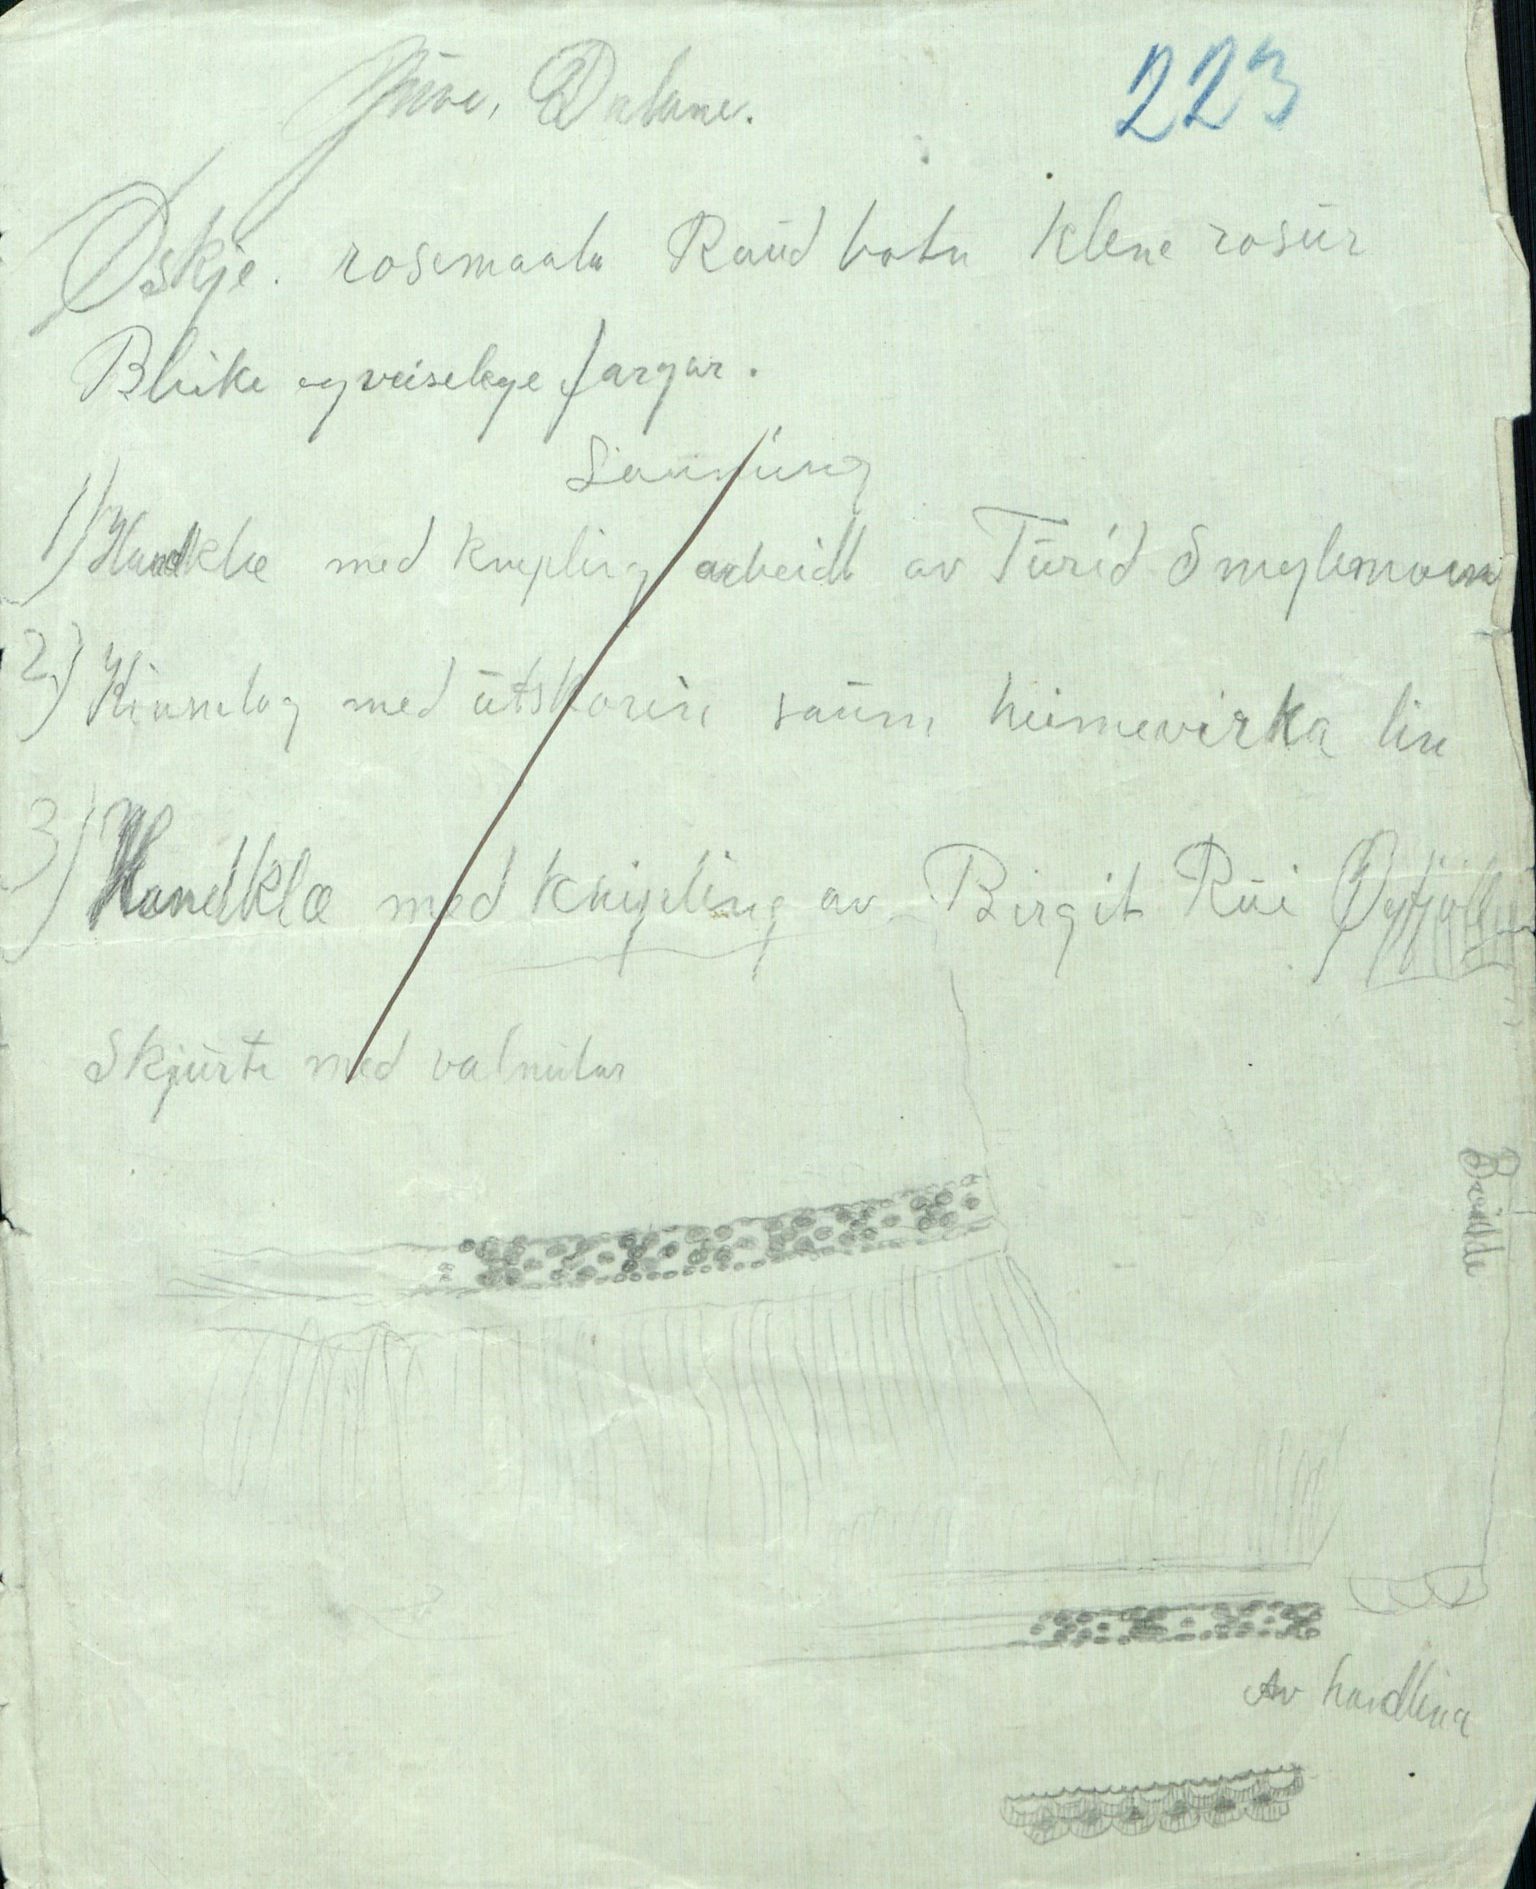 Juve, Dalane.
223
Øskje. rosemaala Raud botn Klene rosur
Bleike og veiselege fargar.
Saumung
1) Handklæ med knipling arbeidt av Turid Smylemoen
2) Kinnelag med utskorin saum heimevirka lin
3) Handklæ med knipling av Birgit Rui Øyfjell
Skjurte med valnutar
Breidde
Av handlina